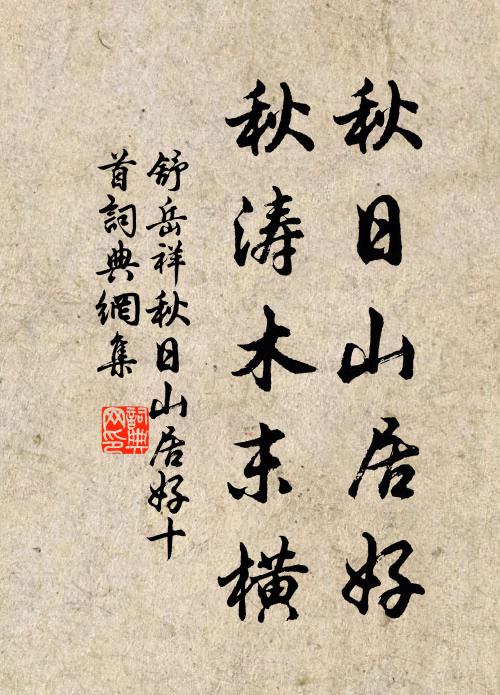 秋日山居好
秋涛木末横
舒岳祥秋日山居好十
首詞典網集
詞典
网印